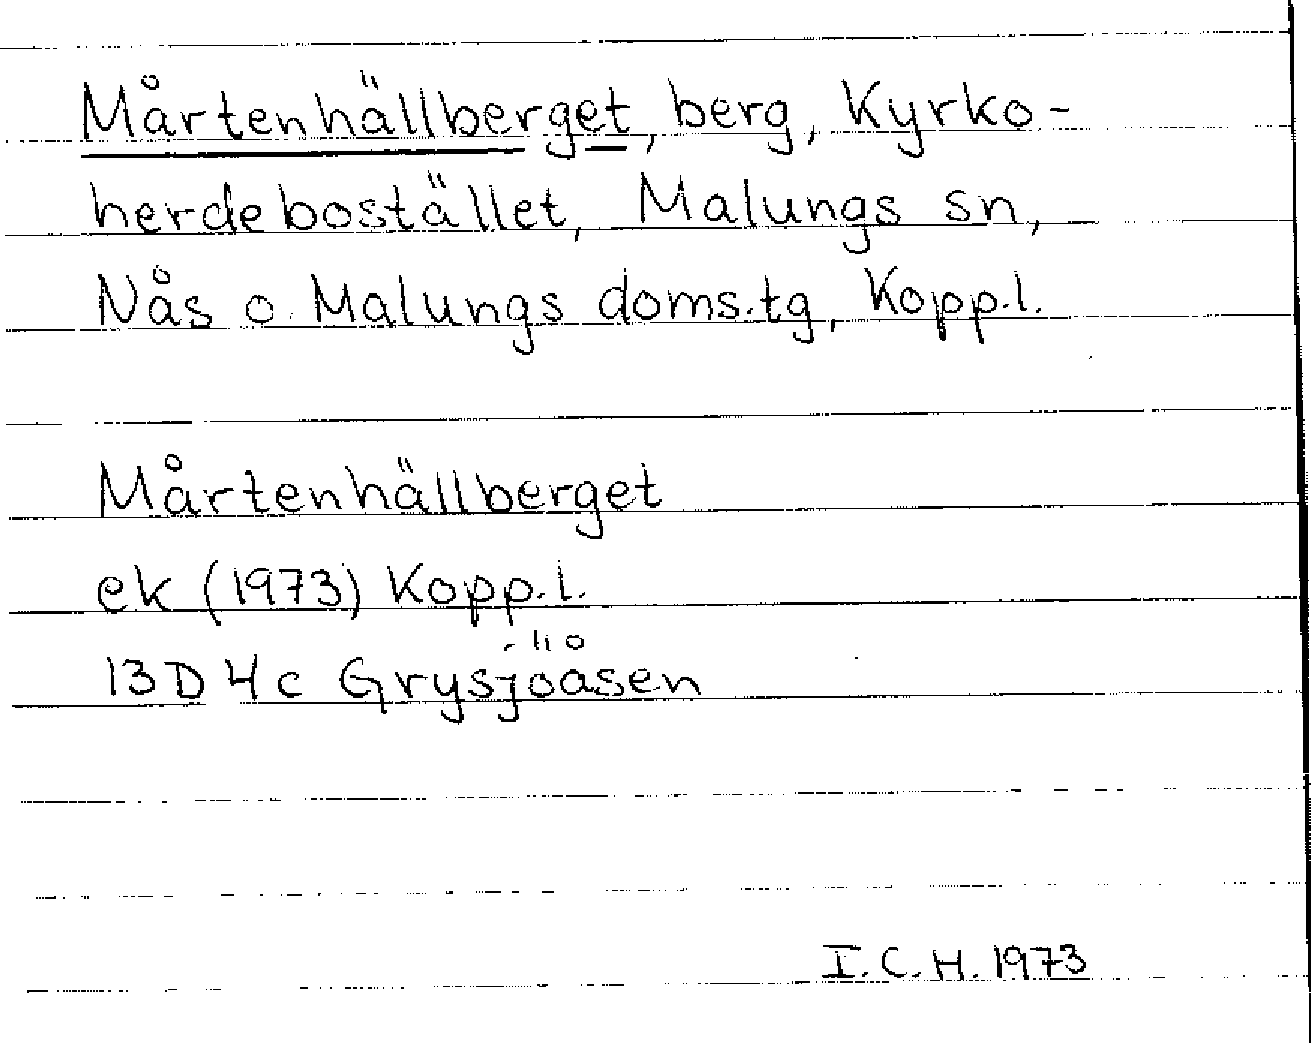 Mårtenhällberget, berg, Kyrko-
herdebostället, Malungs sn,
Nås o. Malungs doms.tg, Kopp.l.
Mårtenhällberget
ek (1973) Kopp.l.
13D 4c Grysjöåsen
I.C.H. 1973